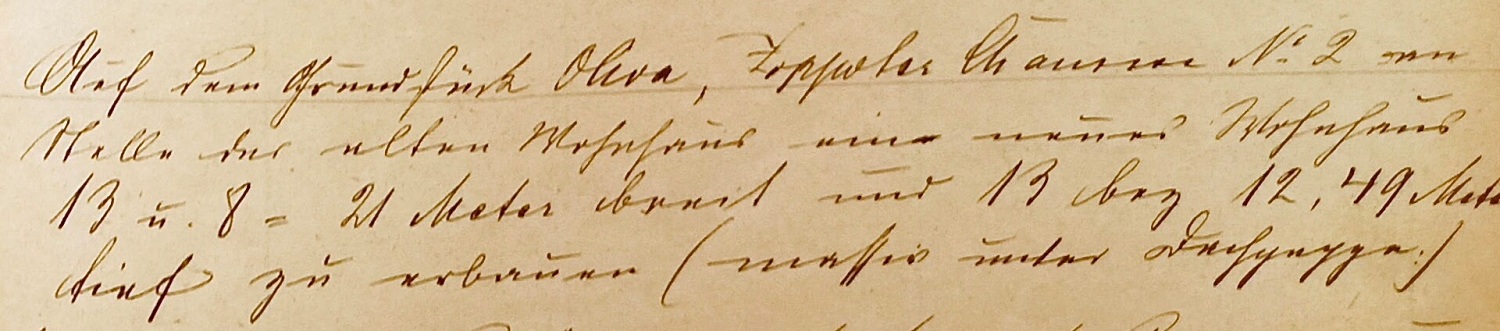 Auf dem Grundstück Oliva, Zoppoter Chaussee No 2 an
Stelle des alten Wohnhaus ein neues Wohnhaus
13 u. 8 = 21 Meter breit und 13 bez 12,49 Mete
tief zu erbauen (massiv unter Dachpappe:)